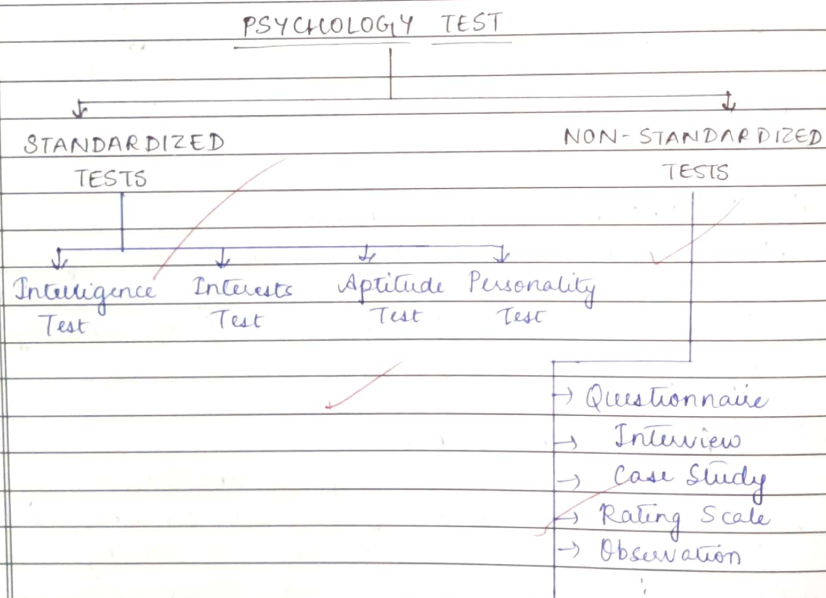 PSYCHOLOGY TEST
STANDARDIZED
TESTS
NON-STANDARDIZED
TESTS
Intelligence
Test
Interests
Test
Aptitude
Test
Personality
Test
→ Questionnaire
→ Interview
→ Case Study
→ Rating Scale
→ Observation